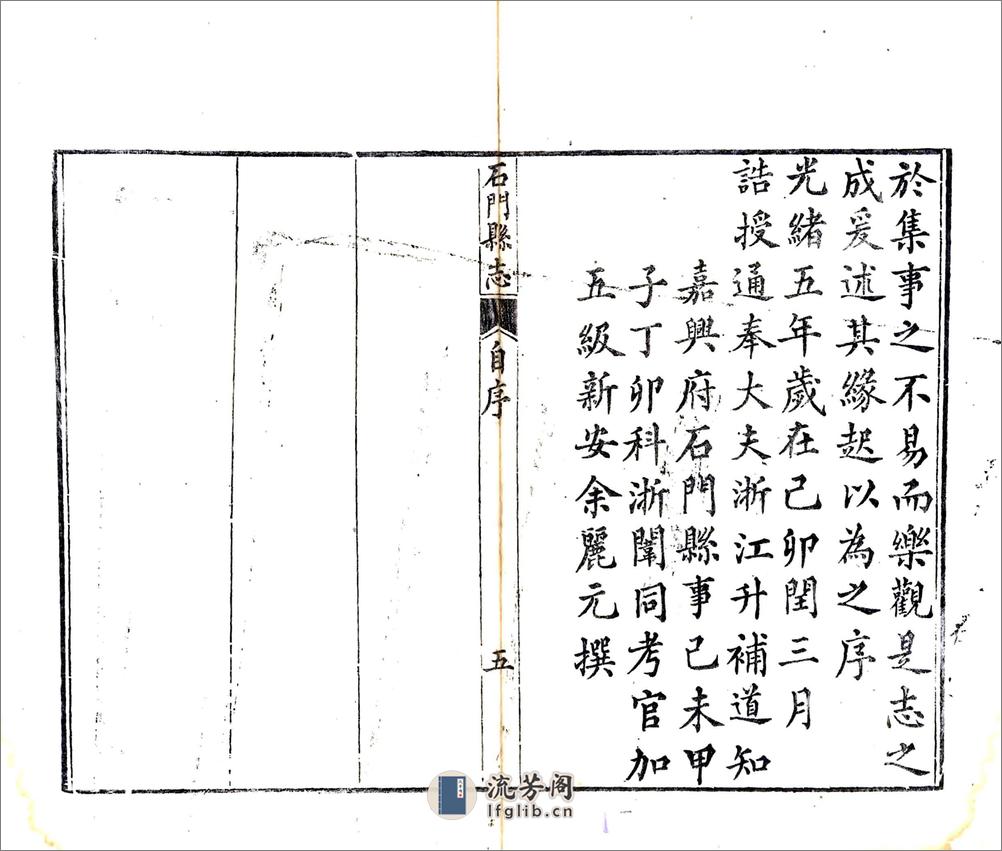 於集事之不易而樂觀是志之
成爰述其緣起以為之序
光緒五年歲在己卯閏三月
誥授通奉大夫浙江升補道知
嘉興府石門縣事己未甲
子丁卯科浙闈同考官加
五級新安余麗元撰
石門縣志
自序
五
流芳阁
lfglib.cn